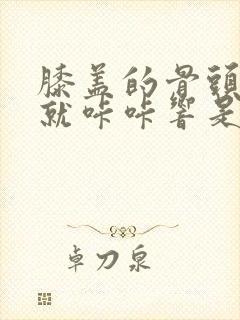 膝盖的骨頭
就咔咔響是
卓刀泉